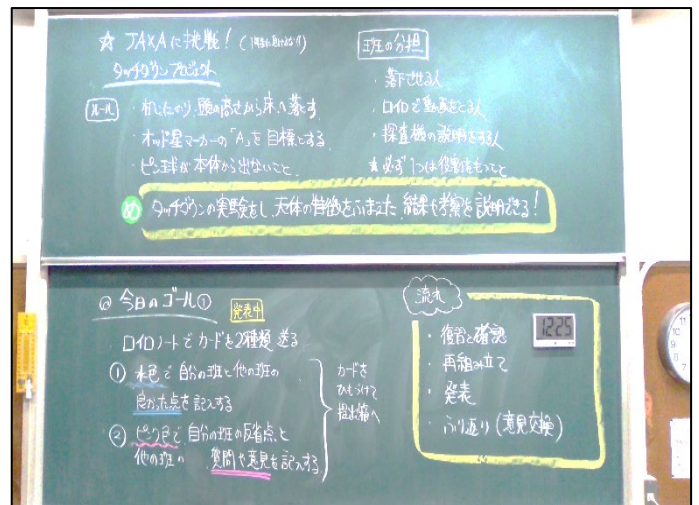 ☆ JAXAに挑戦！
タッチダウンプロジェクト
ルール
・机の上から床へ落とす
・オッド星マーカーの「A」を目標とする
・ピン球が本体から出ないこと
班の分担
・落下させる人
・ロイロで動画をとる人
・探査機の説明をする人
★必ず1つは役割をもつこと
め タッチダウンの実験をし、天体の特徴をふまえた結果や考察を説明できる！
◎ 今日のゴール①
発表中
ロイロノートでカードを2種類送る
① 水色で自分の班と他の班の
良かった点を記入する
② ピンク色で自分の班の反省点と
他の班の質問や意見を記入する
カードを
ひもづけて
提出箱へ
流れ
・復習と確認
・再組み立て
・発表
・ふり返り(意見交換)
12:25